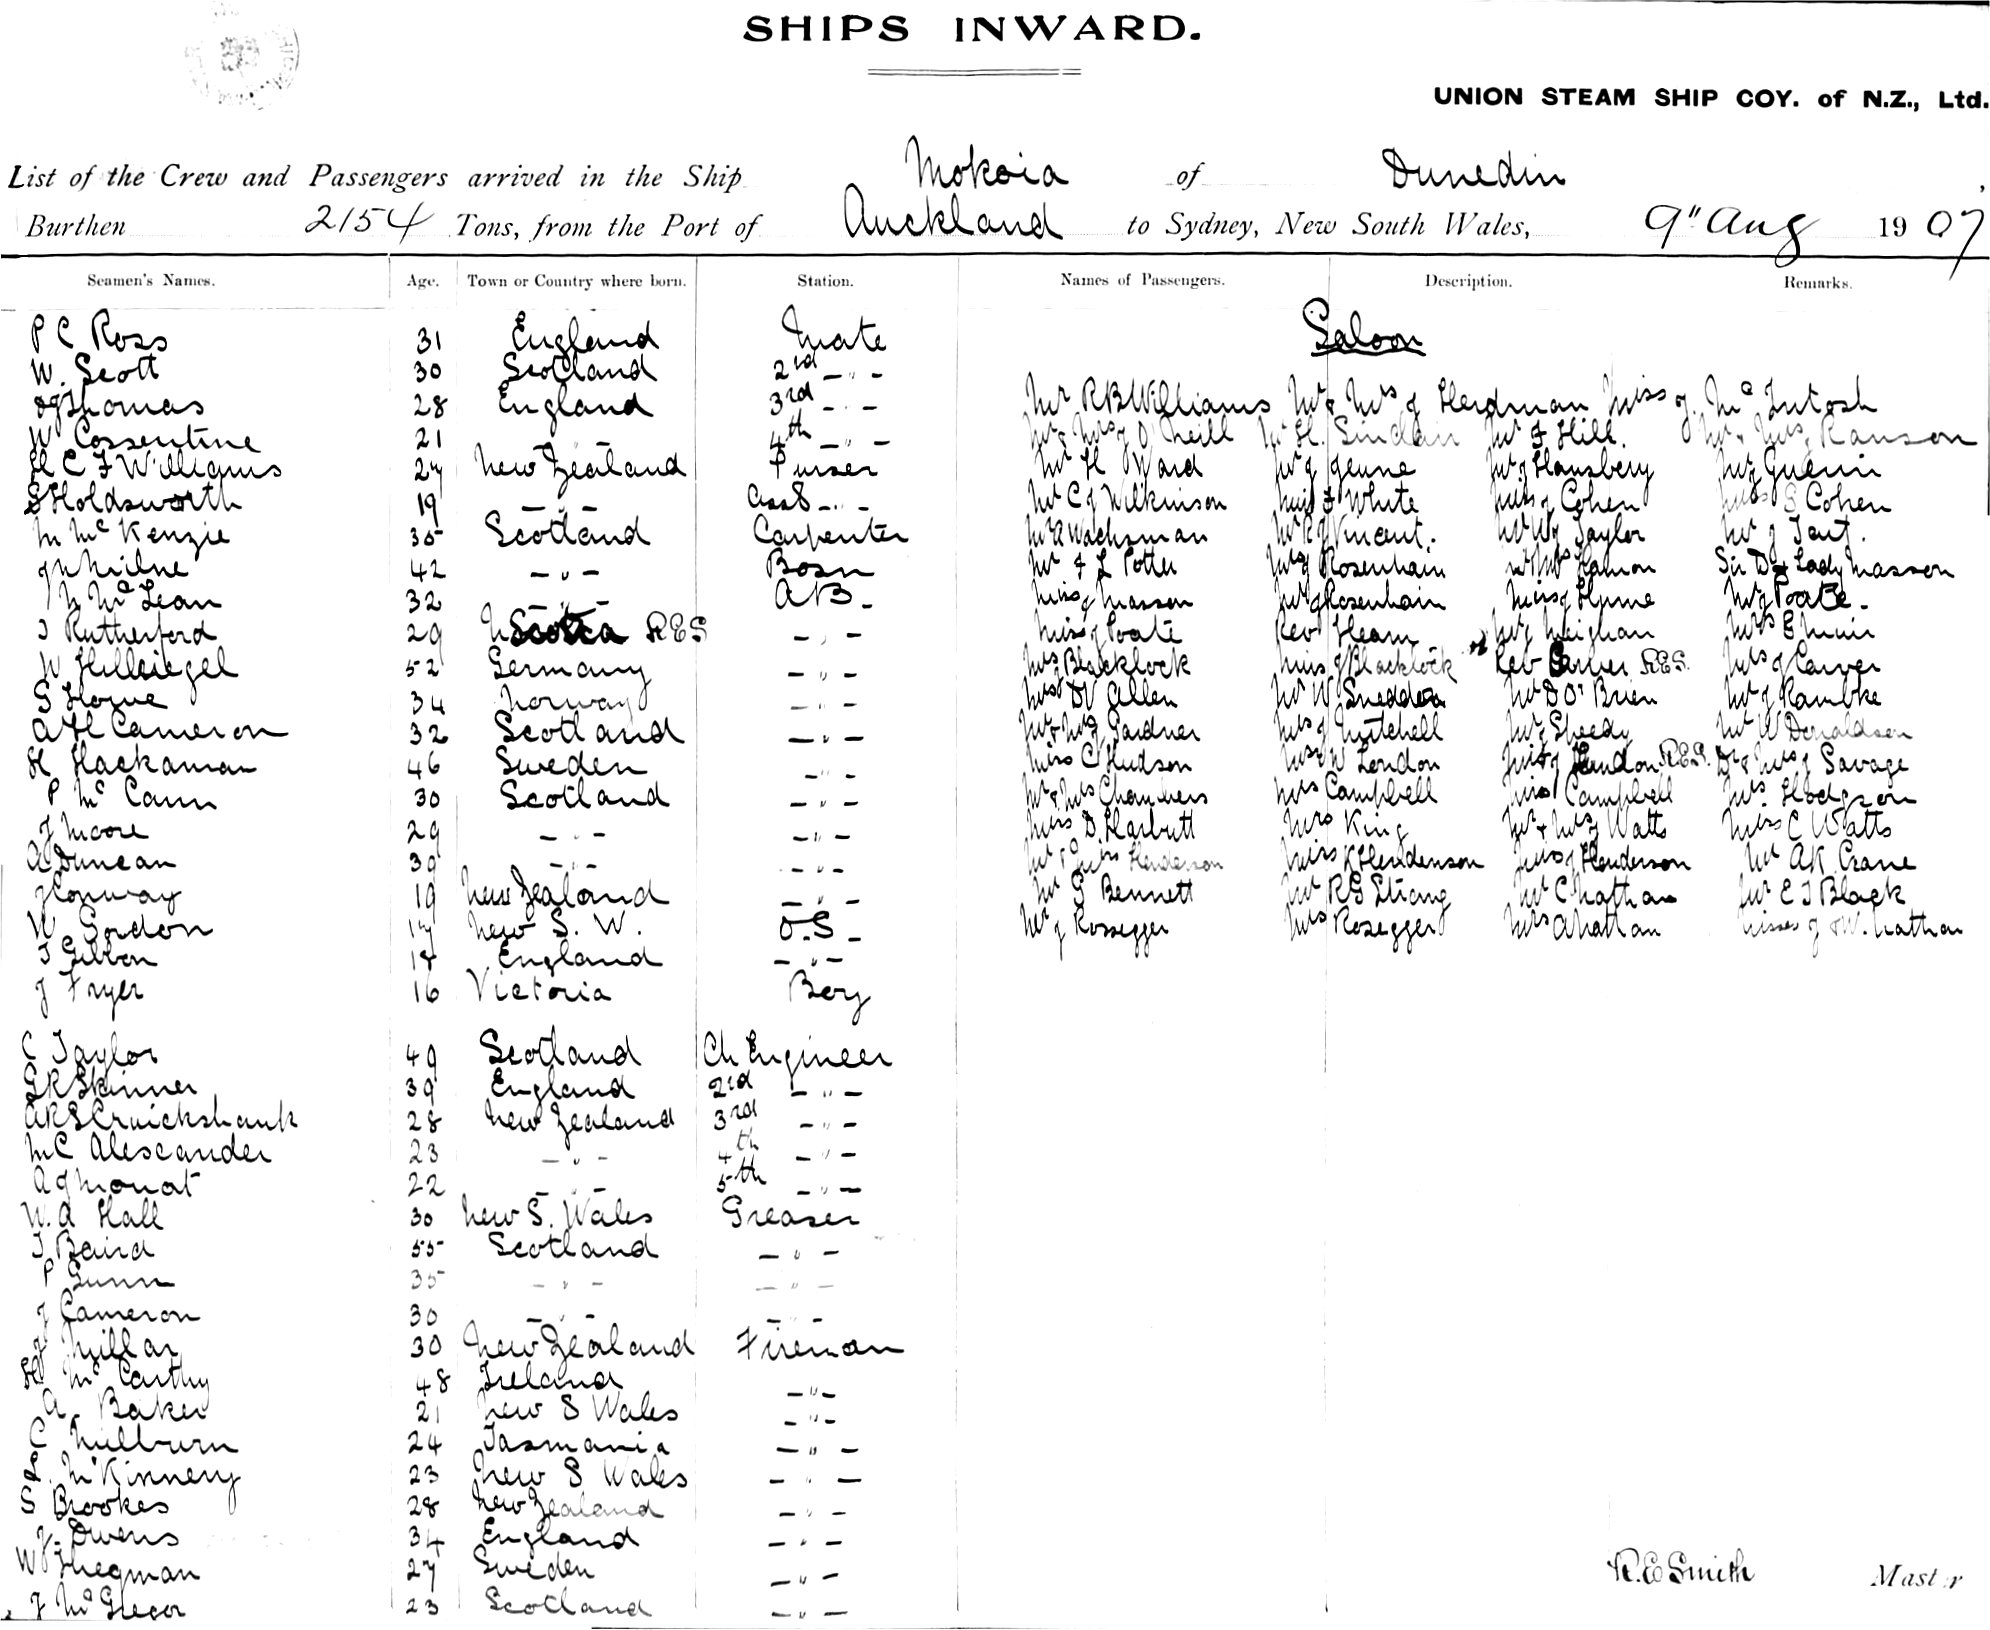 SHIPS INWARD.
UNION STEAM SHIP COY. of N.Z., Ltd.
List of the Crew and Passengers arrived in the Ship Mokoia of Dunedin
Burthen 2154 Tons, from the Port of Auckland to Sydney, New South Wales, 9" Aug 1907
Seamen's Names. Age. Town or Country where born. Station. Names of Passengers. Description. Remarks.
Saloon
P C Ross 31 England Mate
W. Scott 30 Scotland 2nd - " -
Thomas 28 England 3rd - " -
W Cossentine 21 - " - 4th - " -
H C F Williams 27 New Zealand Purser
S Holdsworth 19 - " - Asst - " -
M McKenzie 35 Scotland Carpenter
J W Milne 42 - " - Bosn
N McLean 32 - " - AB -
T Rutherford 29 Scotia RES - " -
W Hilleigel 52 Germany - " -
S Horne 34 Norway - " -
A H Cameron 32 Scotland - " -
H Hackaman 46 Sweden - " -
P McCann 30 Scotland - " -
J Moore 29 - " - - " -
A Duncan 39 - " - - " -
J Conway 19 New Zealand - " -
W Gordon 17 New S. W. O.S -
T Gibbon 17 England - " -
J Fryer 16 Victoria Boy
C Taylor 49 Scotland Ch Engineer
G R Skinner 39 England 2nd - " -
A R S Cruickshank 28 New Zealand 3rd - " -
M C Alexander 23 - " - 4th - " -
A J Mouat 22 - " - 5th - " -
W. A Hall 30 New S. Wales Greaser
T Baird 55 Scotland - " -
P Gunn 35 - " - - " -
J Cameron 30 - " - - " -
J Millar 30 New Zealand Fireman
H McCarthy 48 Ireland - " -
A. Baker 21 New S Wales - " -
C Milburn 24 Tasmania - " -
McKinnery 23 New S Wales - " -
S Brookes 28 New Zealand - " -
J. Owens 34 England - " -
W Thegman 27 Sweden - " -
J McGregor 23 Scotland - " -
Mr R B Williams Mr & Mrs J Herdman Miss J. McIntosh
Mr & Mrs J O'Neill Mr H. Sinclair Mr F Hill. Mr & Mrs J Ranson
Mr H Ward Mr J Genne Mr J Hansberg Mr J Guerin
Mr C J Wilkinson Miss F White Miss J Cohen Miss S Cohen
Mr A Wachsman Mr R J Vincent. Mr W J Taylor Mr J Tait.
Mr F L Potter Mrs J Rosenhain Mr & Mrs Hamon Sir D & Lady Masson
Miss J Masson Mr J Rosenhain Miss J Hume Mr J Poate.
Miss J Poate Rev Hearn Mr J Meighan Mrs E Muir
Mrs Blacklock Miss J Blacklock Rev Carver RES. Mrs J Carver
Mrs D V Allen Mr W Sneddon Mr D O'Brien Mr J Rambke
Mr & Mrs J Gardner Mrs J Mitchell Mr J Sheedy Mr W Donaldson
Miss C Hudson Mrs W London Miss J London RES. Dr & Mrs J Savage
Mr & Mrs Chambers Mrs Campbell Miss Campbell Mrs Hodgson
Miss D. Harbutt Mrs King Mr & Mrs J Watts Miss C Watts
Mr & Miss Henderson Miss K Henderson Miss J Henderson Mr A K. Crane
Mr G Bennett Mr R G Strang Mr C Nathan Mr E J Black
Mr J Rossegger Mrs Rosegger Mrs A Nathan Misses J & W. Nathan
R. E Smith Master